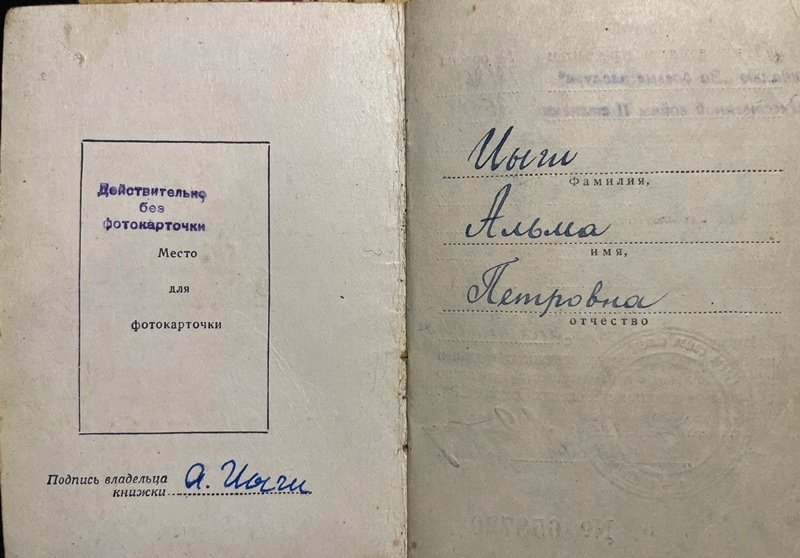 Действительно
без
фотокарточки
Место
для
фотокарточки
Подпись владельца
книжки А. Иыги
Иыги
Фамилия,
Альма
имя,
Петровна
отчество